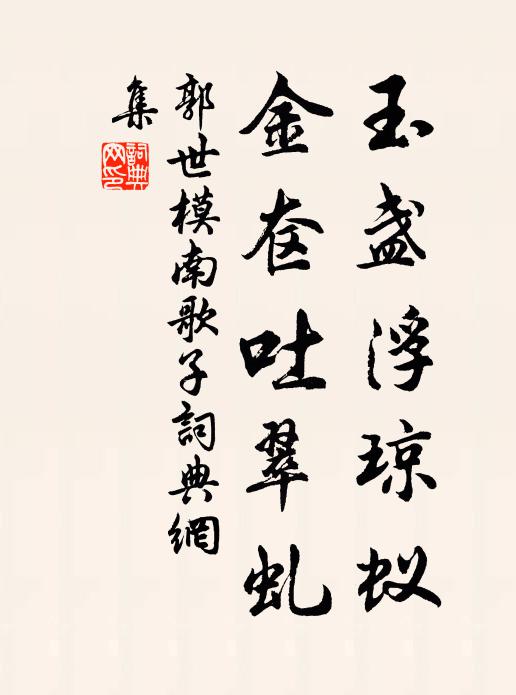 玉盏浮琼蚁
金奁吐翠虬
郭世模南歌子詞典網
集
詞典
网印